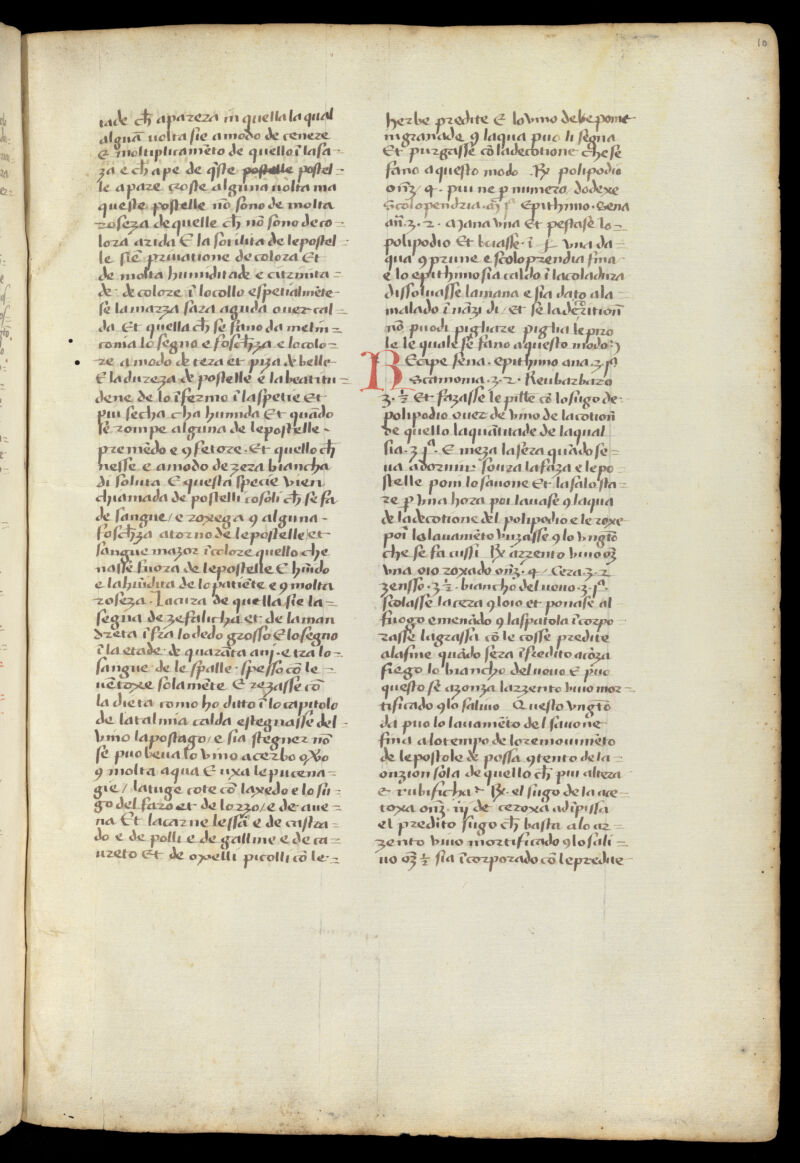 10
tade ch̄ apareza in quella la qual
alguā uolta sie a modo de cenere
E moltiplicamēto de quello ī la fa-
za e ch̄ ape de q̄ste postelle postel-
le apare croste alguna uolta ma
queste postelle nō sono de molta
roseza de quelle ch̄ nō sono de co-
lora arida E la sotilita de le postel-
le siē priuatione de colora Et
de molta humiditade e citrinita-
de de colore ī lo collo espetialmēte
se la marza sara aguda ouer cal-
da Et quella ch̄ se fano da melin-
conia lo segno e foscheza e lo colo-
re a modo de tera et piza de belle
E la dureza de postelle e la beatitu-
dene de lo īfermo ī la spetie Et
piu secha cha humida Et quādo
se rompe alguna de le postelle-
premēdo e 9 fetore. Et quello ch̄
nesse e a modo de zera biancha
di soluta E questa specie vien
chiamada de postelli cosoli ch̄ se fa
de sangue/ e roxega 9 alguna-
foscheza atorno de le postelle/ et
sangue mazor ī colore quello che
nasse fuora de le postelle E hūido
e la hūidita de lo patiēte e 9 molta
roseza. La cura de quella sie la-
segna de zefalicha et de la man
dreta īfra lo dedo grosso E lo segno
ī la etade de quarāta anj. e tra lo-
sangue de le spalle. spesso cō le-
uētoxe solamēte E rezasse cō
la dieta como ho ditto ī lo capitolo
de la talmia calda e stegnasse del-
vino la postago/ e sia stegner nō
se puo beua lo vino acerbo ox̄o
9 molta aqua E uxa le pucena-
gie/ latuge cote cō laxedo e lo su-
go del faro et de lorzo/ e de aue-
na Et la carne lessā e de castra-
do e de polli e de galline e de ca-
ureto Et de oxelli picolli cō le-
herbe predite E lo vino debe pome
ingranade 9 laqua puo li segna
Et purgasse cō la decotione che se
fano a questo modo. ℞ polipodio
onz̄ 4. piu ne p̱ numero dodexe
Scolopendria. an̄ ʃ Epithimo. Sena
an̄. ʒ. 2. Mana vna Et pestase lo-
polipodio Et boiasse. ī ʃ vna da
qua 9 prune e scoloprendia fina
e lo epithimo sia caldo ī la coladura
dissoluasse la mana e sia dato a la
malado ī nāzi di/ et se la decotiōn
nō puodi pigliare piglia le piro
le le quale se fano a questo modo:)
REcipe sena. epithimo ana. ʒ. ʃ
Scamonia. ʒ. 2. Reubarbaro
ʒ. ½ Et fazasse le pille cō lo sugo de-
polipodio ouer de vino de la cotiōn
de quello la quātitade de la qual
sia. ʒ ʃ. E meza la sera quādo se-
ua adormir soura la faza e le po-
stelle poni lo sauone Et lasalo sta-
re p̱ vna hora poi lauase 9 laqua
de la decotione del polipodio e le roxe
poi lo lauamēto vnzasse 9 lo vngtō
che se fa cussi ℞ arzento viuo onz̄
vna olo roxado onz̄. 4. Cera. ʒ. 2
zensso. ʒ ½. biancho del uouo. ʒ. ʃ.
scolasse la cera 9 loio et ponase al
fuogo e menādo 9 la spatola īcorpo
rasse la grassa cō le cosse predite
a la fine quādo sera īfredito azōza
siego lo biancho del uouo E puo
questo se azonza larzento viuo mor-
tificado 9 lo saliuo Questo vngtō
da puo lo lauamēto del sauone
fina a lo tempo de lo remouimēto
de le postole de possa 9tento de la-
onzion sola de quello ch̄ piu altera-
e rubificha: ℞. el sugo de la ace-
toxa onz̄. iij de ceroxa adipissa
el predito sugo ch̄ basta a lo ar-
zento viuo mortificado 9 lo sali-
uo onz̄ ½ sia īcorporado cō le predite